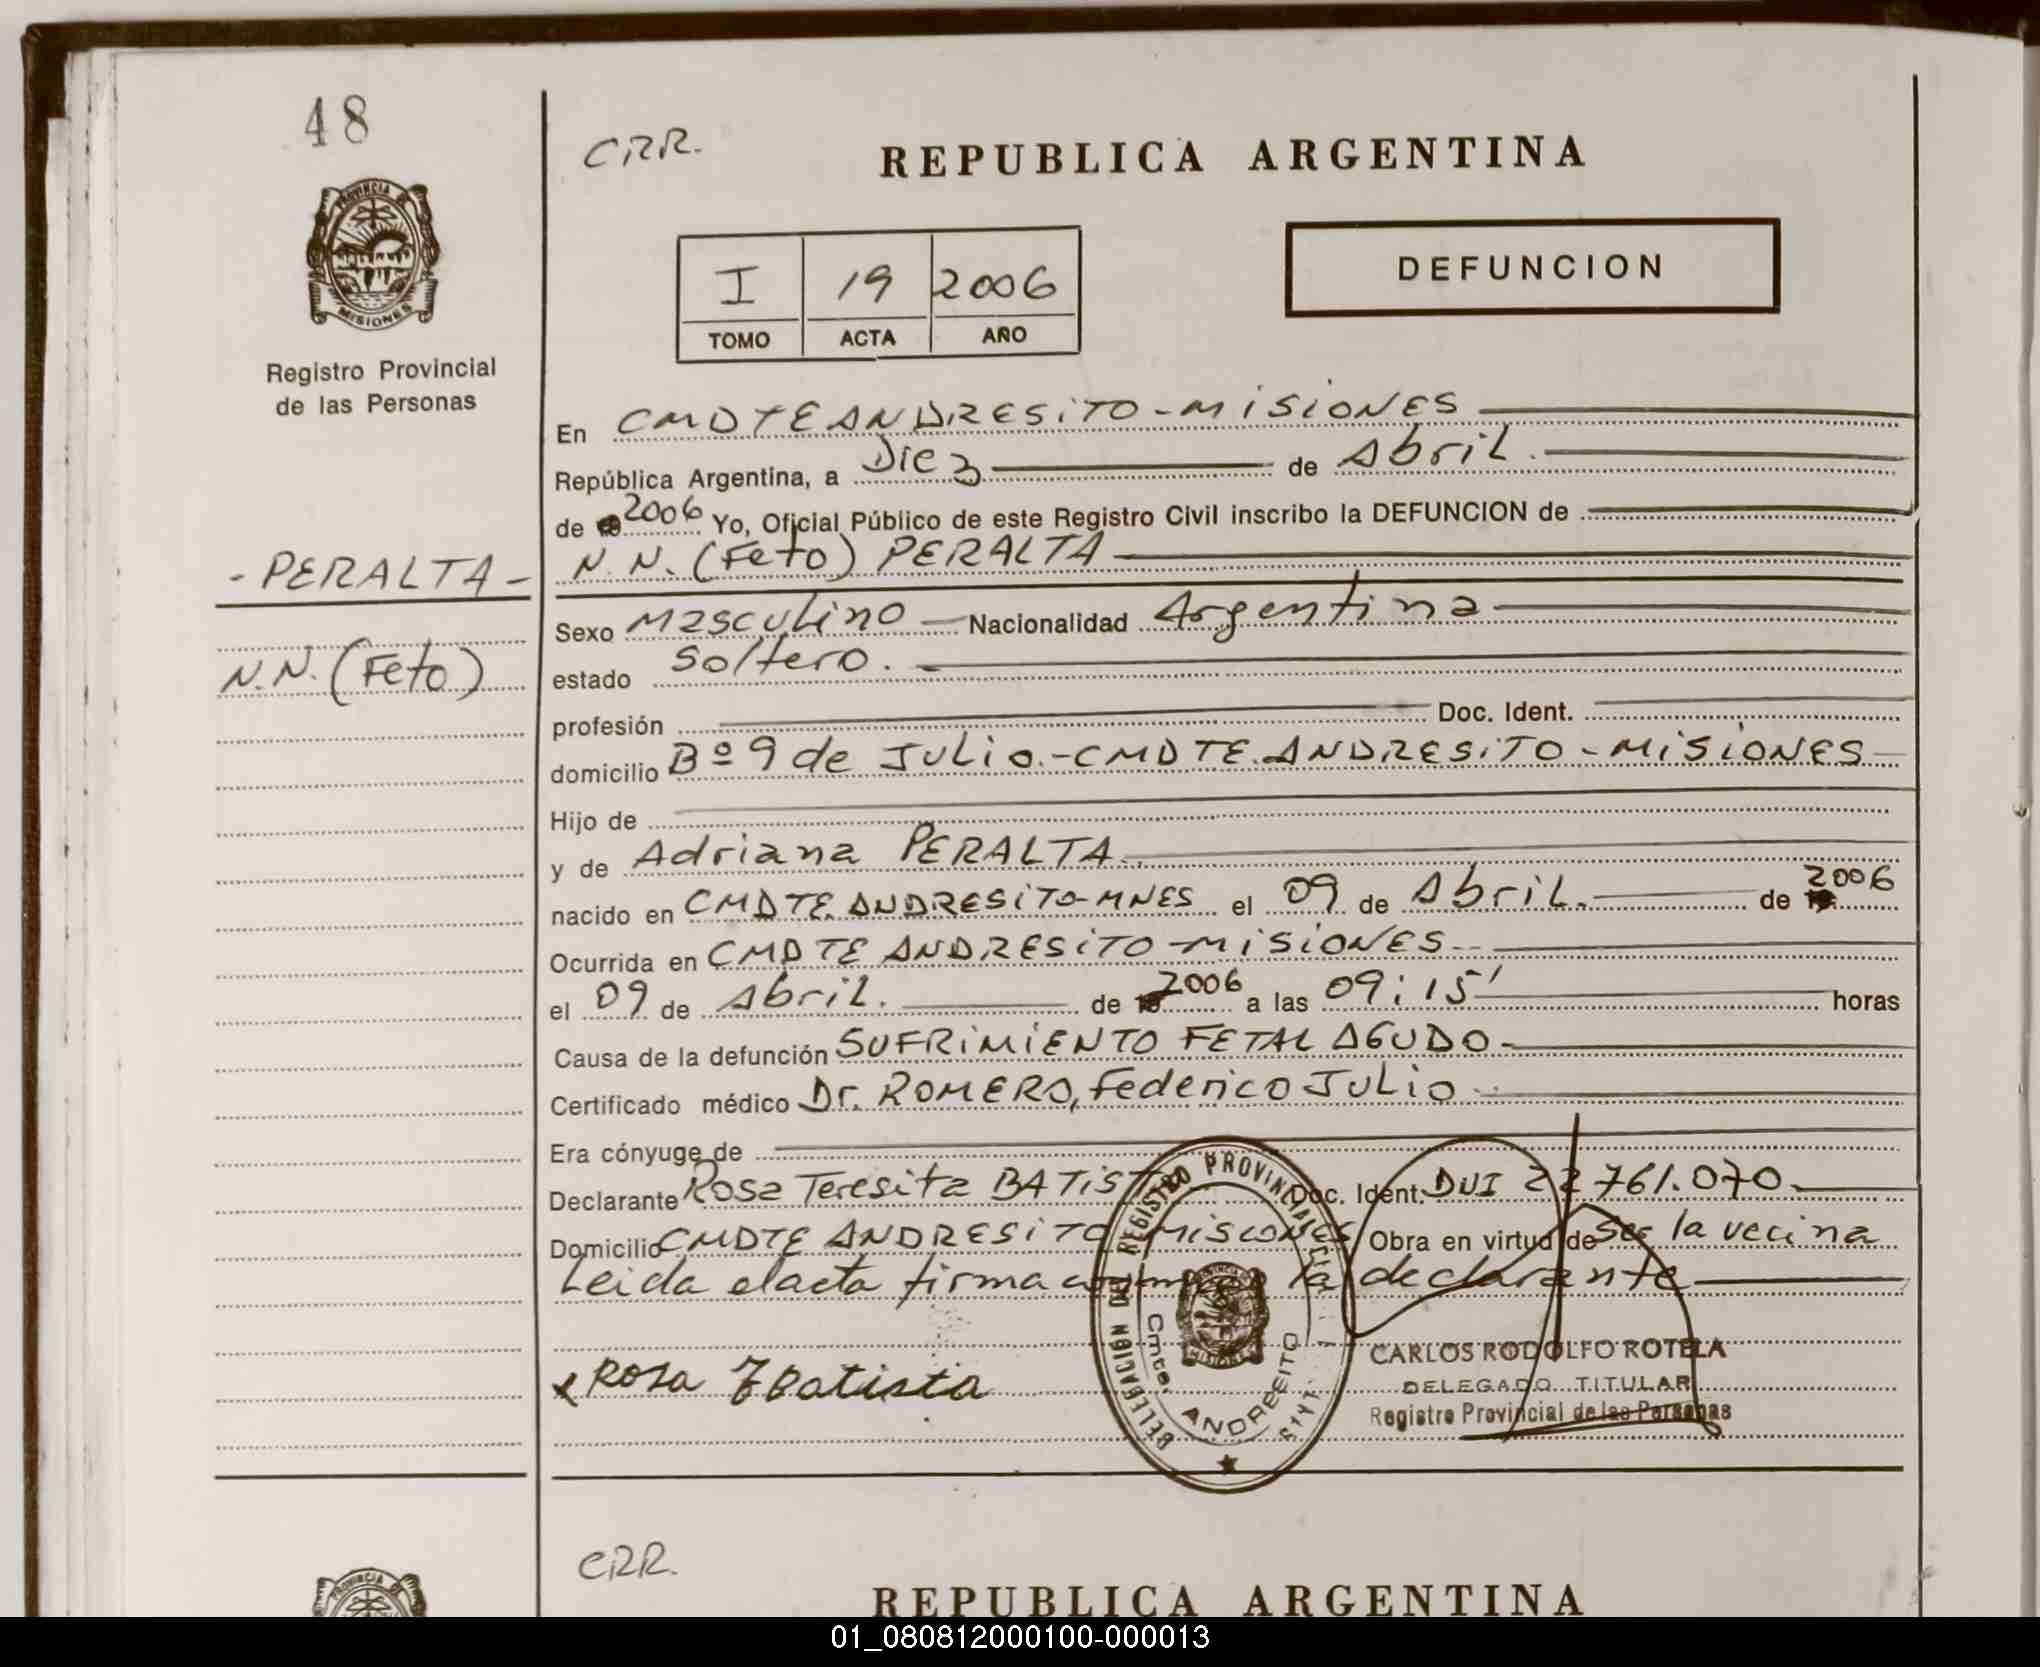 48
CRR.
REPUBLICA ARGENTINA
PROVINCIA DE
MISIONES
I 19 2006
TOMO ACTA AÑO
DEFUNCION
Registro Provincial
de las Personas
En CMDTE ANDRESITO - MISIONES
República Argentina, a Diez de Abril.
de 2006 Yo, Oficial Público de este Registro Civil inscribo la DEFUNCION de
- PERALTA -
N.N. (Feto) PERALTA
Sexo Masculino Nacionalidad Argentina
N.N. (Feto)
estado soltero.
profesión Doc. Ident.
domicilio Bº 9 de JULIO.-CMDTE. ANDRESITO - MISIONES
Hijo de
y de Adriana PERALTA.
nacido en CMDTE. ANDRESITO-MNES el 09 de Abril. de 2006
Ocurrida en CMDTE ANDRESITO - MISIONES.
el 09 de Abril. de 2006 a las 09:15' horas
Causa de la defunción SUFRIMIENTO FETAL AGUDO.
Certificado médico Dr. ROMERO, Federico JULIO
Era cónyuge de
Declarante Rosa Teresita BATISTA Doc. Ident. DUI 22.761.070.
Domicilio CMDTE ANDRESITO MISIONES Obra en virtud de Ser la vecina
Leida el acta firma la declarante
DELEGACION DEL REGISTRO PROVINCIAL
Cmte. ANDRESITO
MISIONES
Rosa T Batista
CARLOS RODOLFO ROTELA
DELEGADO TITULAR
Registro Provincial de las Personas
CRR.
PROVINCIA DE
REPUBLICA ARGENTINA
01_080812000100-000013